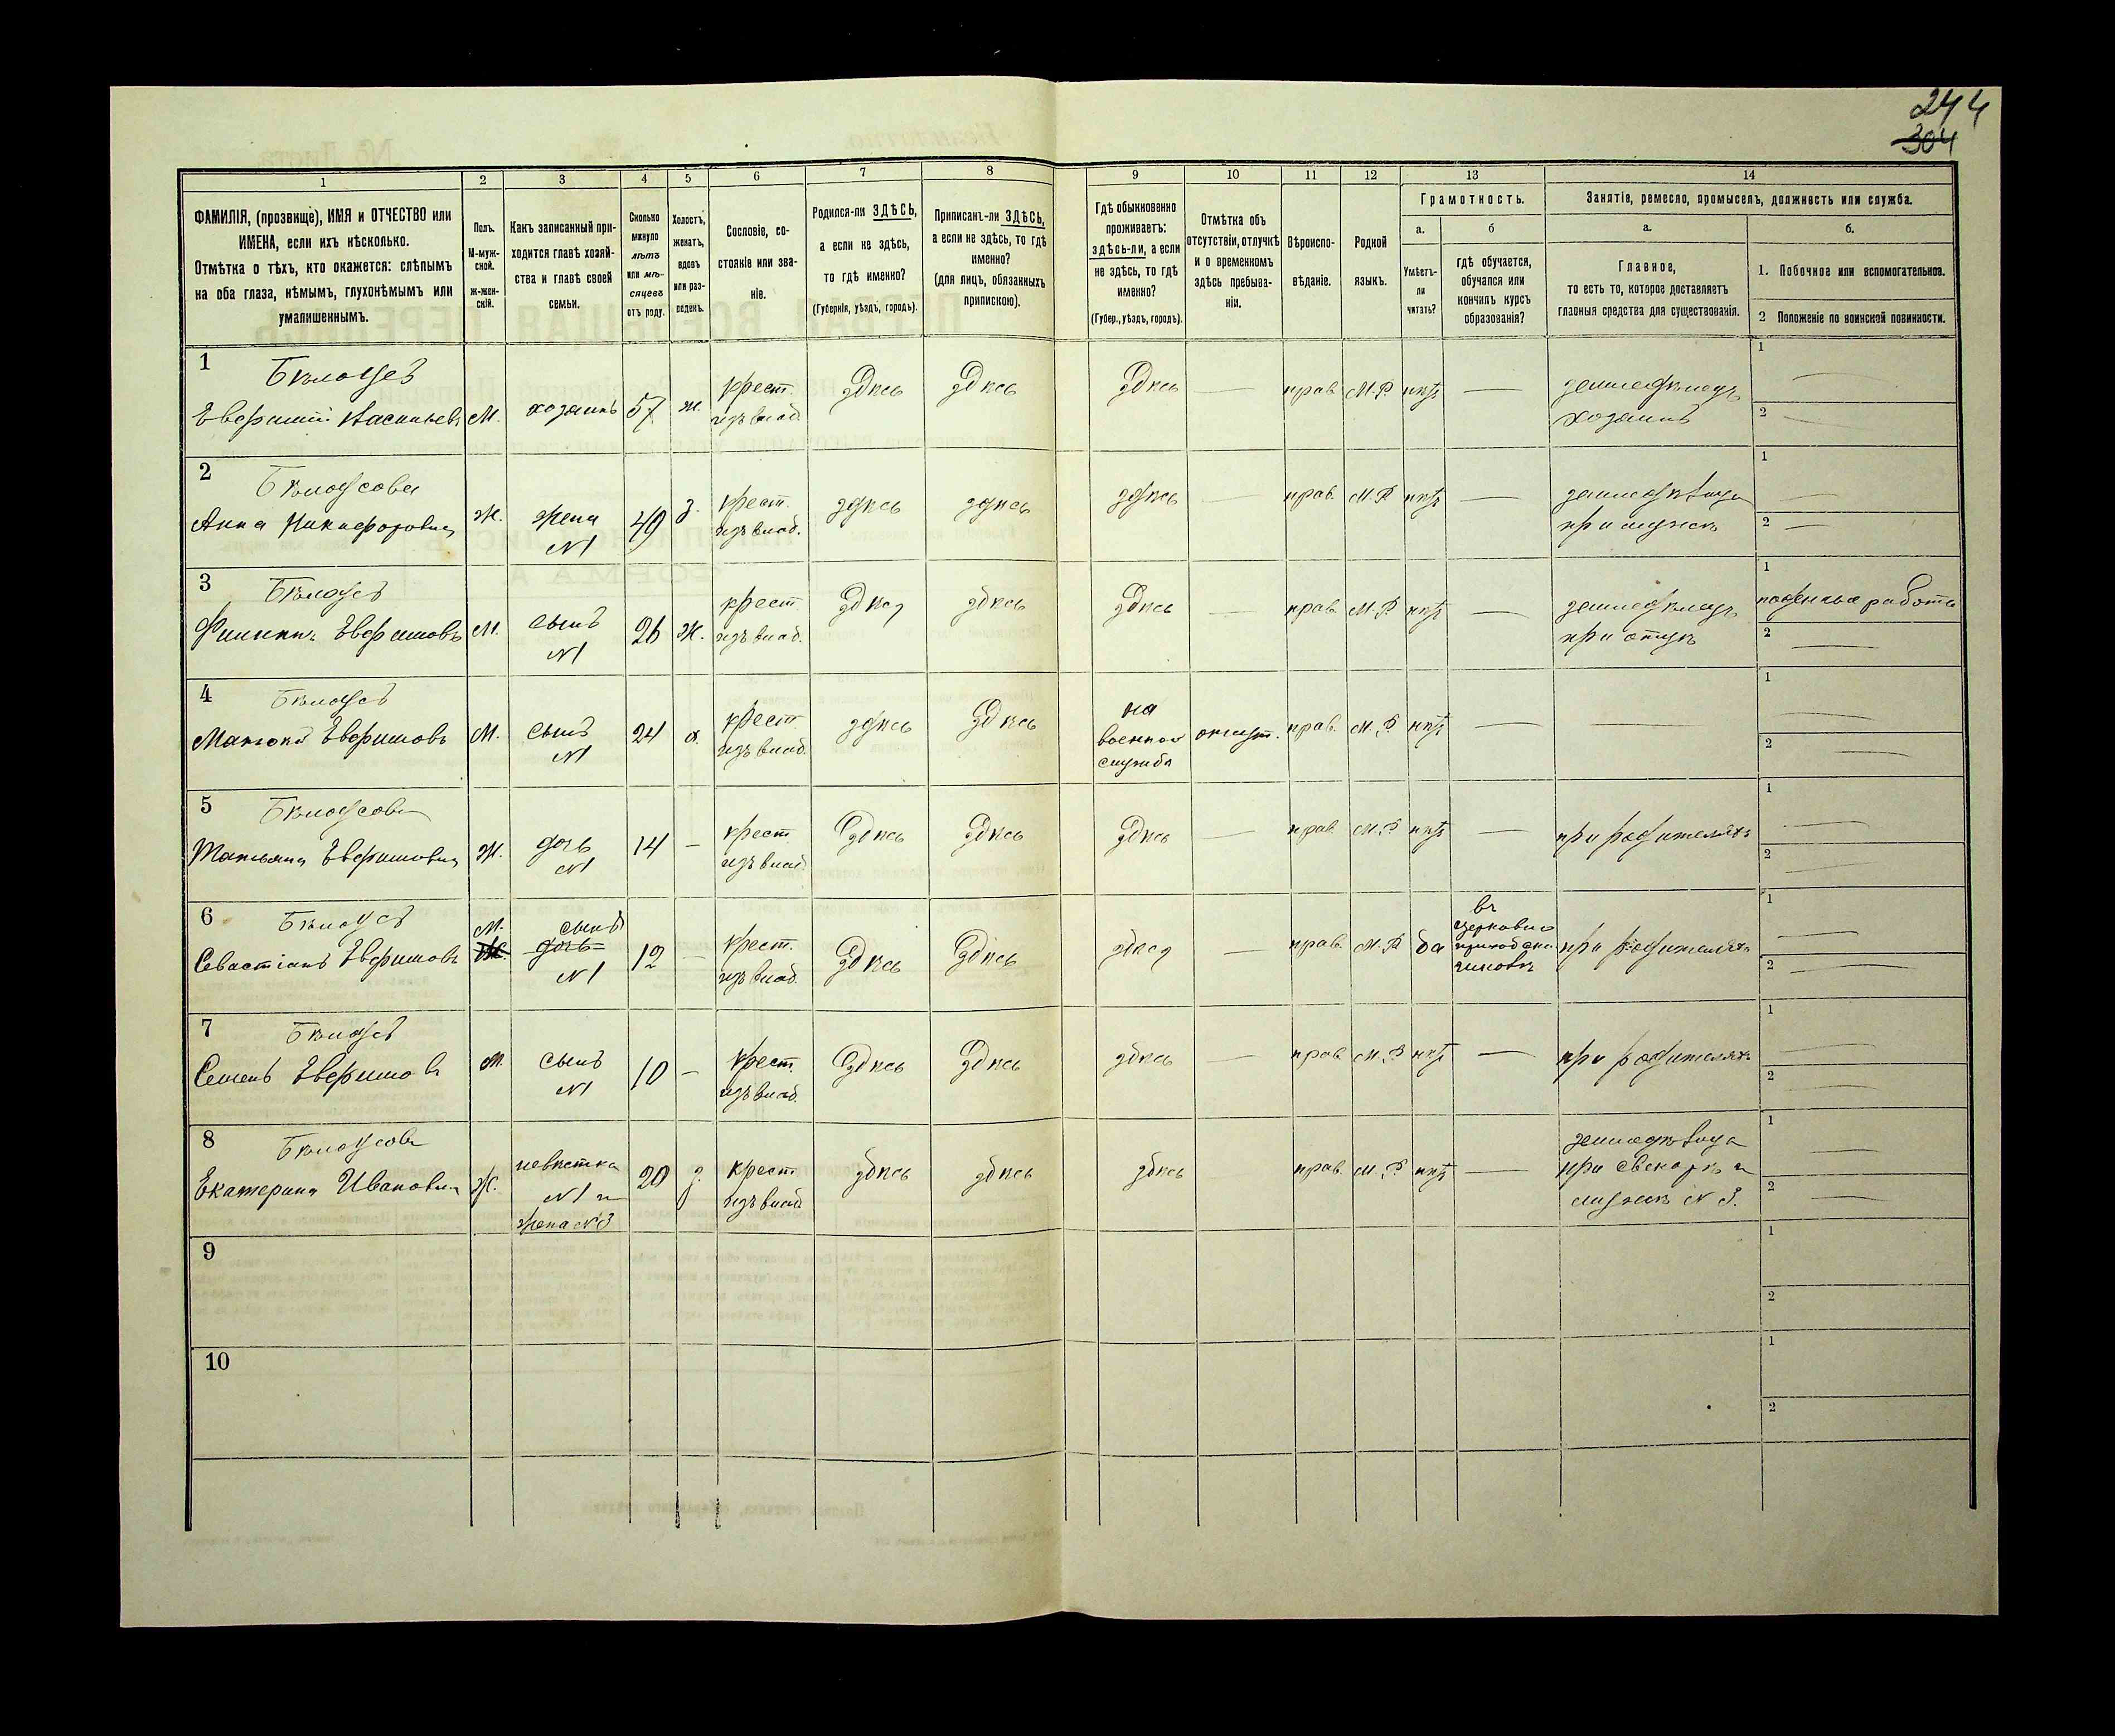 244
304
1
2
3
4
5
6
7
8
9
10
11
12
13
14
ФАМИЛІЯ, (прозвище), ИМЯ и ОТЧЕСТВО или
ИМЕНА, если ихъ нѣсколько.
Отмѣтка о тѣхъ, кто окажется: слѣпымъ
на оба глаза, нѣмымъ, глухонѣмымъ или
умалишеннымъ.
Полъ.
М-муж-
ской.
Ж-жен-
скій.
Какъ записанный при-
ходится главѣ хозяй-
ства и главѣ своей
семьи.
Сколько
минуло
лѣтъ
или мѣ-
сяцевъ
отъ роду.
Холостъ,
женатъ,
вдовъ
или раз-
веденъ.
Сословіе, со-
стояніе или зва-
ніе.
Родился-ли ЗДѢСЬ,
а если не здѣсь,
то гдѣ именно?
(Губернія, уѣздъ, городъ).
Приписанъ-ли ЗДѢСЬ,
а если не здѣсь, то гдѣ
именно?
(для лицъ, обязанныхъ
припискою).
Гдѣ обыкновенно
проживаетъ:
здѣсь-ли, а если
не здѣсь, то гдѣ
именно?
(Губер., уѣздъ, городъ).
Отмѣтка объ
отсутствіи, отлучкѣ
и о временномъ
здѣсь пребыва-
ніи.
Вѣроиспо-
вѣданіе.
Родной
языкъ.
Грамотность.
а.
Умѣетъ-
ли
читать?
б
гдѣ обучается,
обучался или
кончилъ курсъ
образованія?
Занятіе, ремесло, промыселъ, должность или служба.
а.
Главное,
то есть то, которое доставляетъ
главныя средства для существованія.
б.
1. Побочное или вспомогательное.
2 Положеніе по воинской повинности.
1
Бѣлоусъ
М. хозяинъ 57 ж. крест. здѣсь здѣсь здѣсь — прав. М.Р. нѣтъ —
изъ влад.
хозяинъ
1
2
2
Бѣлоусова
Анна Никифоровна Ж. жена 49 з. крест. здѣсь здѣсь здѣсь — прав. М.Р. нѣтъ —
N1 изъ влад.
при мужѣ
1
2
3
Бѣлоусъ
М. сынъ 26 ж. крест. здѣсь здѣсь здѣсь — прав. М.Р. нѣтъ —
N1 изъ влад.
при отцѣ
1 работа
2
4
Бѣлоусъ
М. сынъ 24 х. крест. здѣсь здѣсь
N1 изъ влад.
на
военной
службѣ
прав. М.Р. нѣтъ —
1
2
5
Бѣлоусова
Татьяна Ж. дочь 14 — крест. здѣсь здѣсь здѣсь — прав. М.Р. нѣтъ — при родителяхъ
N1 изъ влад.
1
2
6
Бѣлоусъ
Севастіанъ М. Ж. сынъ дочь 12 — крест. здѣсь здѣсь здѣсь — прав. М.Р. да
N1 изъ влад.
въ
церковно
приходской
при родителяхъ
1
2
7
Бѣлоусъ
Семенъ М. сынъ 10 — крест. здѣсь здѣсь здѣсь — прав. М.Р. нѣтъ — при родителяхъ
N1 изъ влад.
1
2
8
Бѣлоусова
Екатерина Ивановна Ж. невѣстка 20 з. крест. здѣсь здѣсь здѣсь прав. М.Р. нѣтъ —
N1 и изъ влад.
жена N3
при свекорѣ и
мужѣ N 3.
1
2
9
1
2
10
1
2